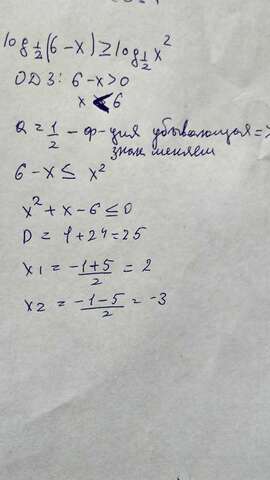 log 1/2 (6-x) ≥ log 1/2 x²
ОДЗ: 6-x>0
x < 6
a = 1/2 - ф-ция убывающая =>
знак меняем
6-x ≤ x²
x² + x - 6 ≤ 0
D = 1+24=25
x1 = (-1+5)/2 = 2
x2 = (-1-5)/2 = -3